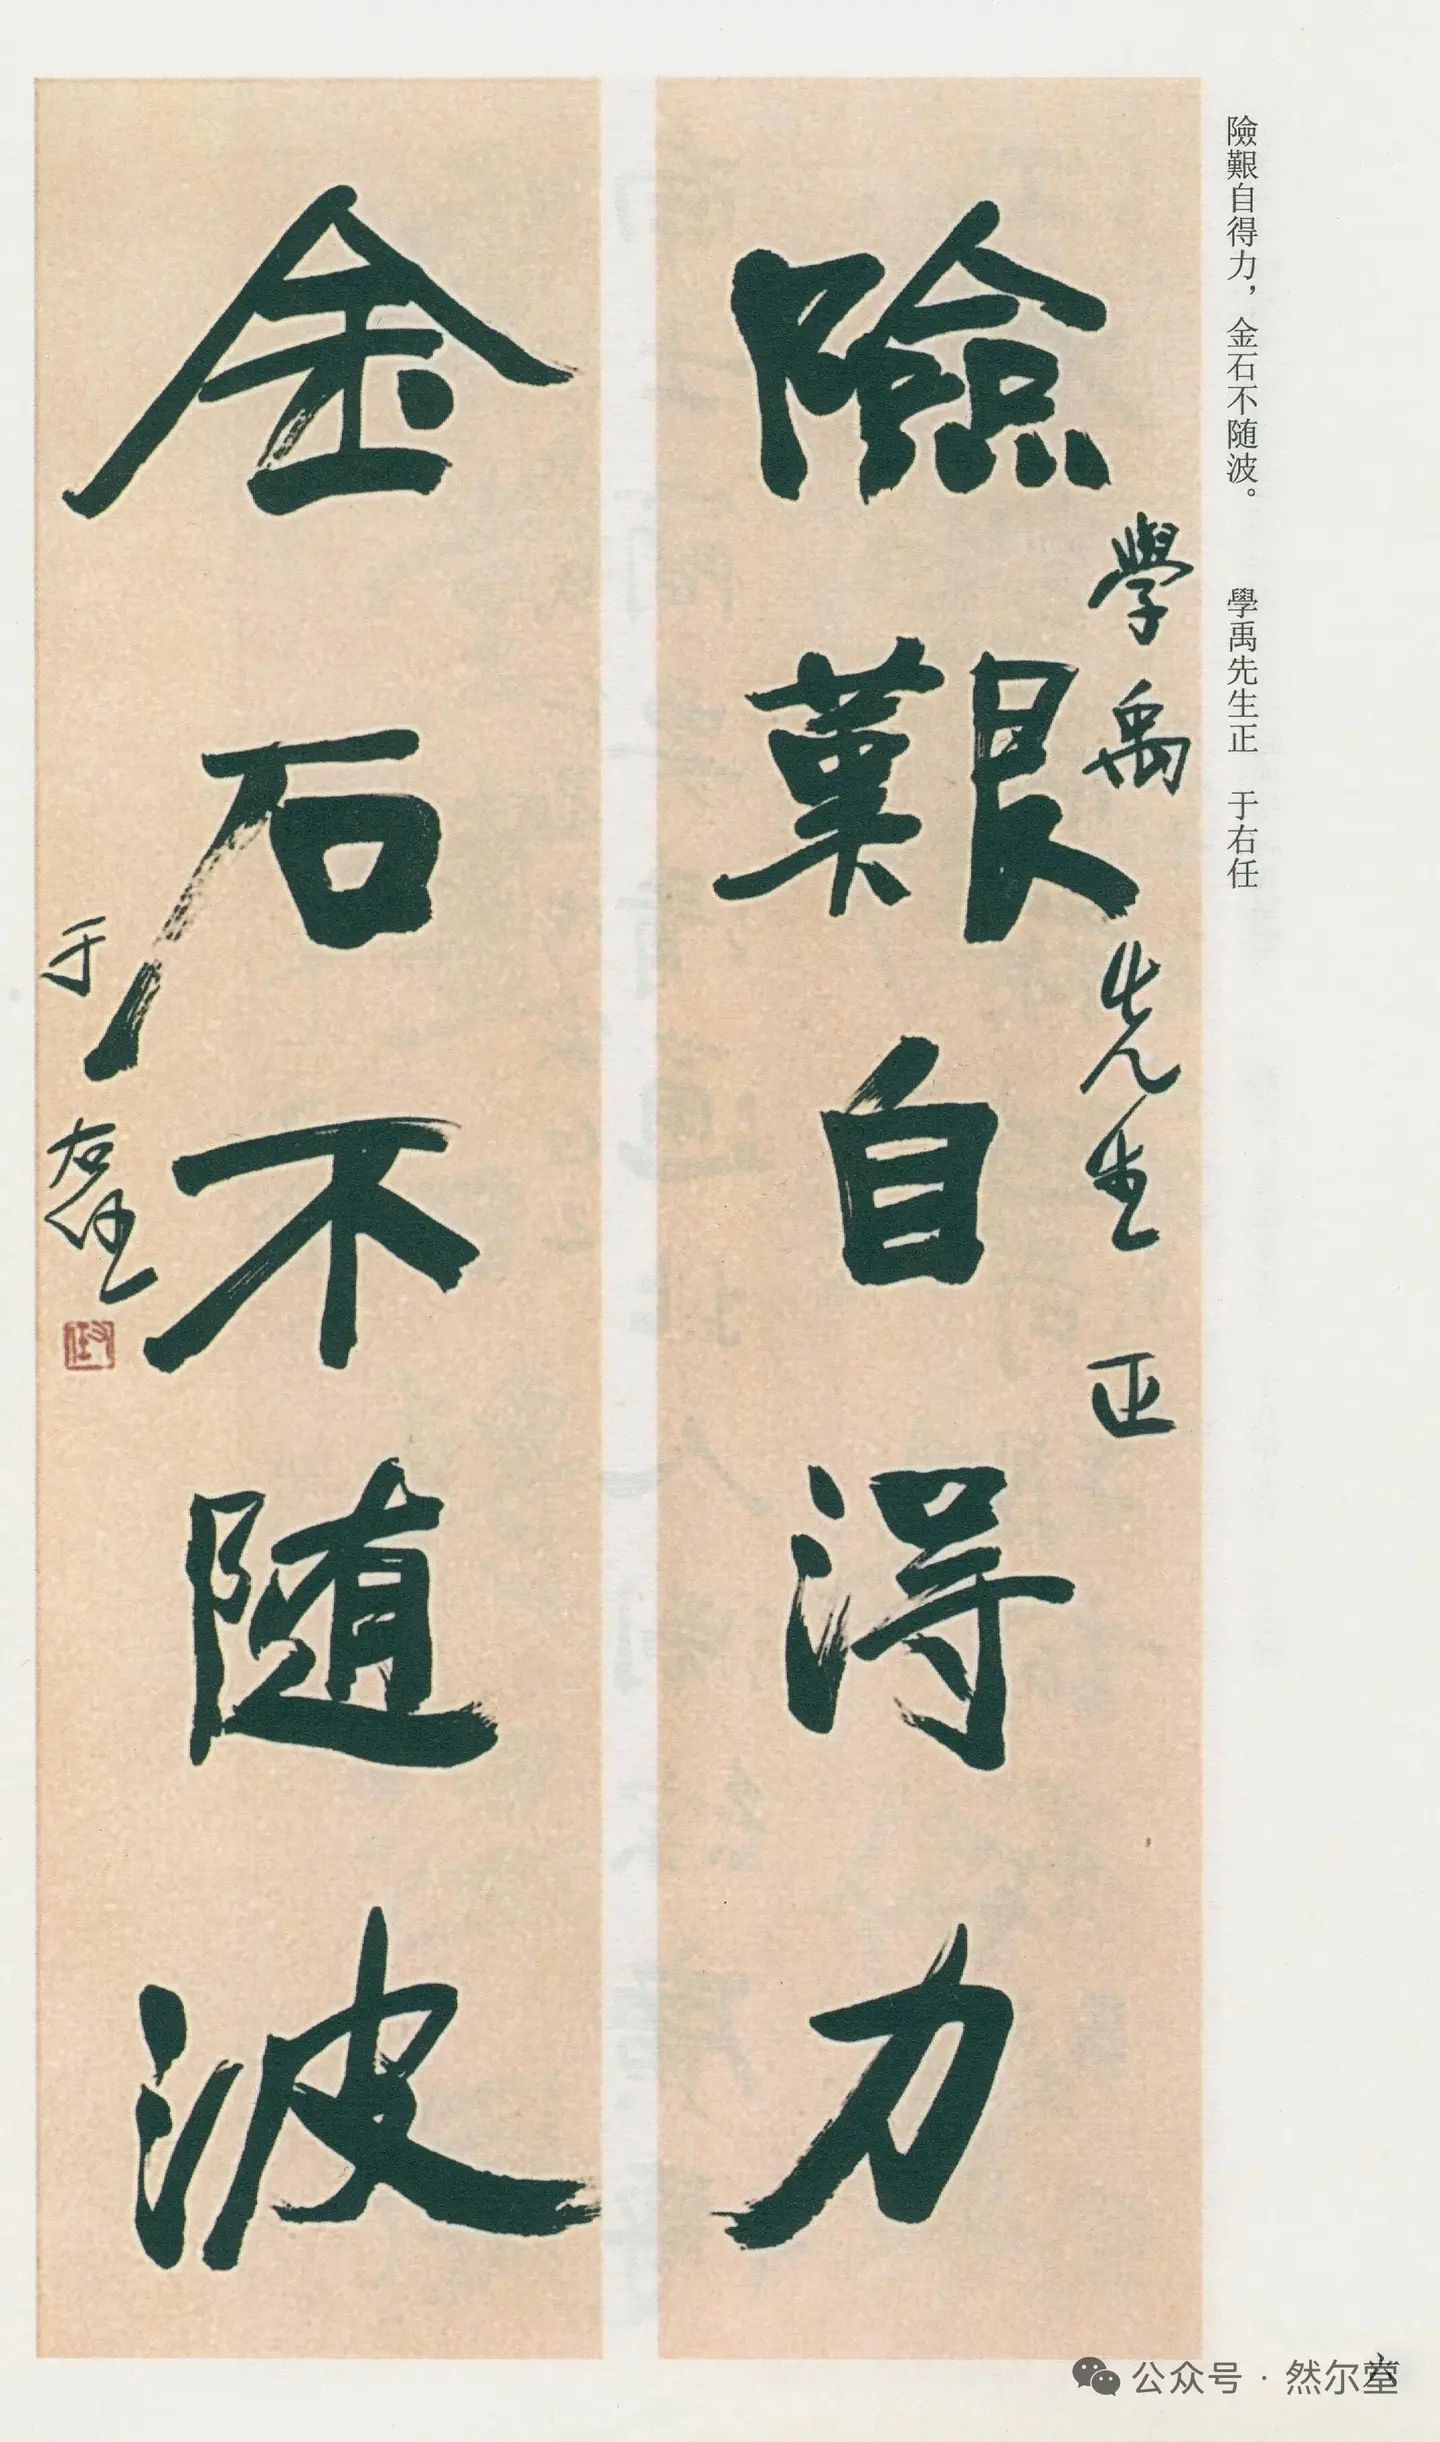 險艱自得力，金石不随波。　學禹先生正　于右任
學禹先生正
險艱自得力
金石不随波
于右任
右任
六
公众号 · 然尔堂